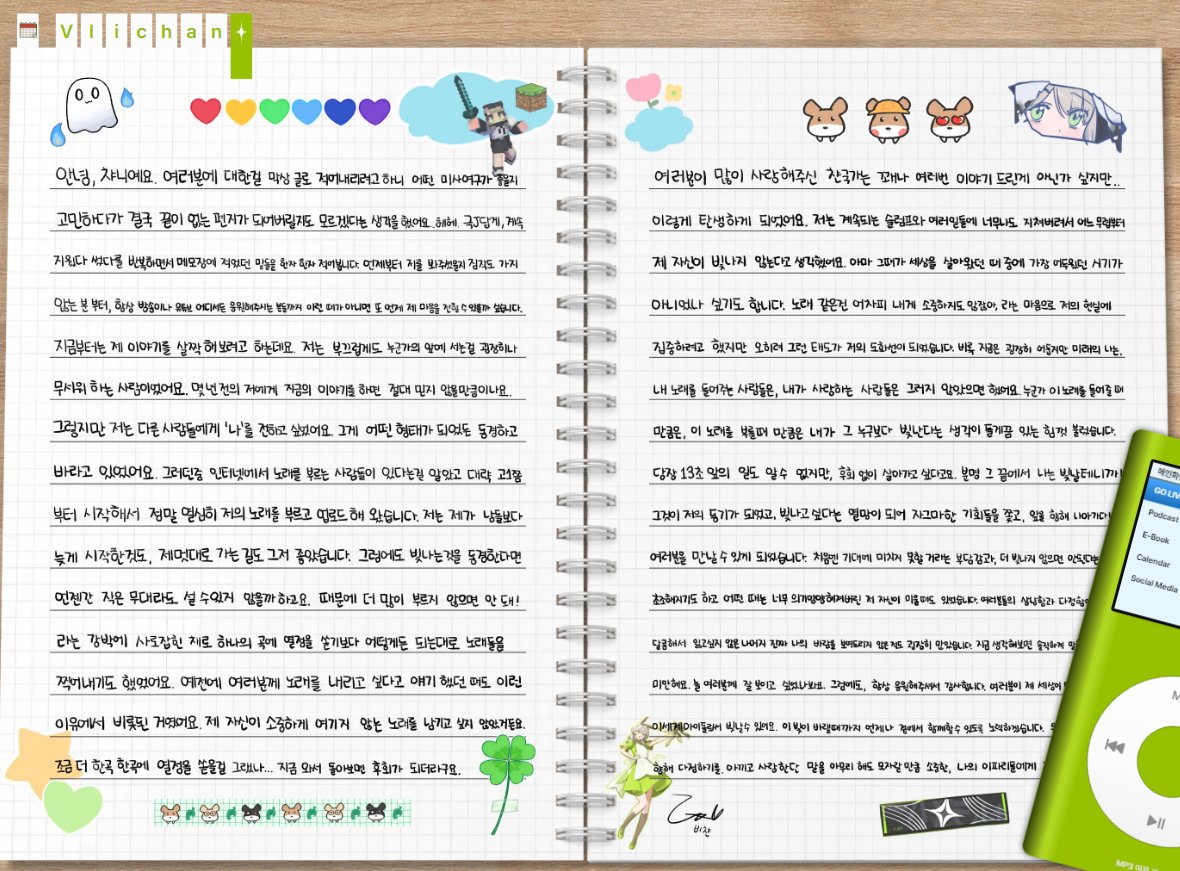 Vlichan
안녕, 챠니예요. 여러분에 대한걸 막상 글로 적어내리려고 하니 어떤 미사여구가 좋을지
고민하다가 결국 끝이 없는 편지가 되어버릴지도 모르겠다는 생각을 했어요.. 헤헤. 극J답게, 계속
지웠다 썼다를 반복하면서 메모장에 적었던 말들을 한자 한자 적어봅니다. 언제부터 저를 봐주셨을지 짐작도 가지
않는 분 부터, 항상 방송이나 유튜브 어디서든 응원해주시는 분들까지 이런 때가 아니면 또 언제 제 마음을 전할 수 있을까 싶습니다.
지금부터는 제 이야기를 살짝 해보려고 하는데요. 저는 부끄럽게도 누군가의 앞에 서는걸 굉장히나
무서워 하는 사람이었어요. 몇 년 전의 저에게 지금의 이야기를 하면 절대 믿지 않을만큼이나요.
그렇지만 저는 다른 사람들에게 '나'를 전하고 싶었어요. 그게 어떤 형태가 되었든 동경하고
바라고 있었어요. 그러던중 인터넷에서 노래를 부르는 사람들이 있다는걸 알았고 대략 고1쯤
부터 시작해서 정말 열심히 저의 노래를 부르고 업로드 해 왔습니다. 저는 제가 남들보다
늦게 시작한것도, 제멋대로 가는 길도 그저 좋았습니다. 그럼에도 빛나는것을 동경한다면
언젠간 작은 무대라도 설 수 있지 않을까 하고요. 때문에 더 많이 부르지 않으면 안 돼!
라는 강박에 사로잡힌 채로 하나의 곡에 열정을 쏟기보다 어떻게든 되는대로 노래들을
찍어내기도 했었어요. 예전에 여러분께 노래를 내리고 싶다고 얘기 했던 때도 이런
이유에서 비롯된 거였어요. 제 자신이 소중하게 여기지 않는 노래를 남기고 싶지 않았거든요.
조금 더 한곡 한곡에 열정을 쏟을걸 그랬나... 지금 와서 돌아보면 후회가 되더라구요.
여러분이 많이 사랑해주신 찬국가는 꽤나 여러번 이야기 드린게 아닌가 싶지만..
이렇게 탄생하게 되었어요. 저는 계속되는 슬럼프와 여러일들에 너무나도 지쳐버려서 어느 무렵부터
제 자신이 빛나지 않는다고 생각했어요. 아마 그때가 세상을 살아왔던 때 중에 가장 어두웠던 시기가
아니었나 싶기도 합니다. 노래 같은건 어차피 내게 소중하지도 않잖아, 라는 마음으로 저의 현실에
집중하려고 했지만 오히려 그런 태도가 저의 도화선이 되었습니다. 비록 지금은 굉장히 어둡지만 미래의 나는,
내 노래를 들어주는 사람들은, 내가 사랑하는 사람들은 그러지 않았으면 했어요. 누군가 이 노래를 들어줄 때
만큼은, 이 노래를 부를때 만큼은 내가 그 누구보다 빛난다는 생각이 들게끔 있는 힘껏 불렀습니다.
당장 13초 앞의 일도 알 수 없지만, 후회 없이 살아가고 싶다고요. 분명 그 끝에서 나는 빛날테니까
그것이 저의 동기가 되었고, 빛나고 싶다는 열망이 되어 자그마한 기회들을 쫓고, 앞을 향해 나아가다
여러분을 만날 수 있게 되었습니다. 처음엔 기대에 미치지 못할 거라는 부담감과, 더 빛나지 않으면 안된다는
초조해지기도 하고 어떤 때는 너무 의기양양해져버린 저 자신이 미울때도 있었습니다. 여러분들의 상냥함과 다정함
답글해서 잃고싶지 않은 나머지 진짜 나의 바람을 보여드리지 않은적도 굉장히 많았습니다. 지금 생각해보면 솔직하게
미안해요. 늘 여러분께 잘 보이고 싶었나봐요. 그럼에도, 항상 응원해주셔서 감사합니다. 여러분이 제 세상에
이세계아이돌로서 빛날수 있어요. 이 빛이 바랠때까지 언제나 곁에서 함께할수 있도록 노력하겠습니다.
향해 다정하기를. 아끼고 사랑한단 말을 아무리 해도 모자랄 만큼 소중한, 나의 이파리들에게
비챤
GO LIV
Podcast
E-Book
Calendar
Social Media
M
MP3